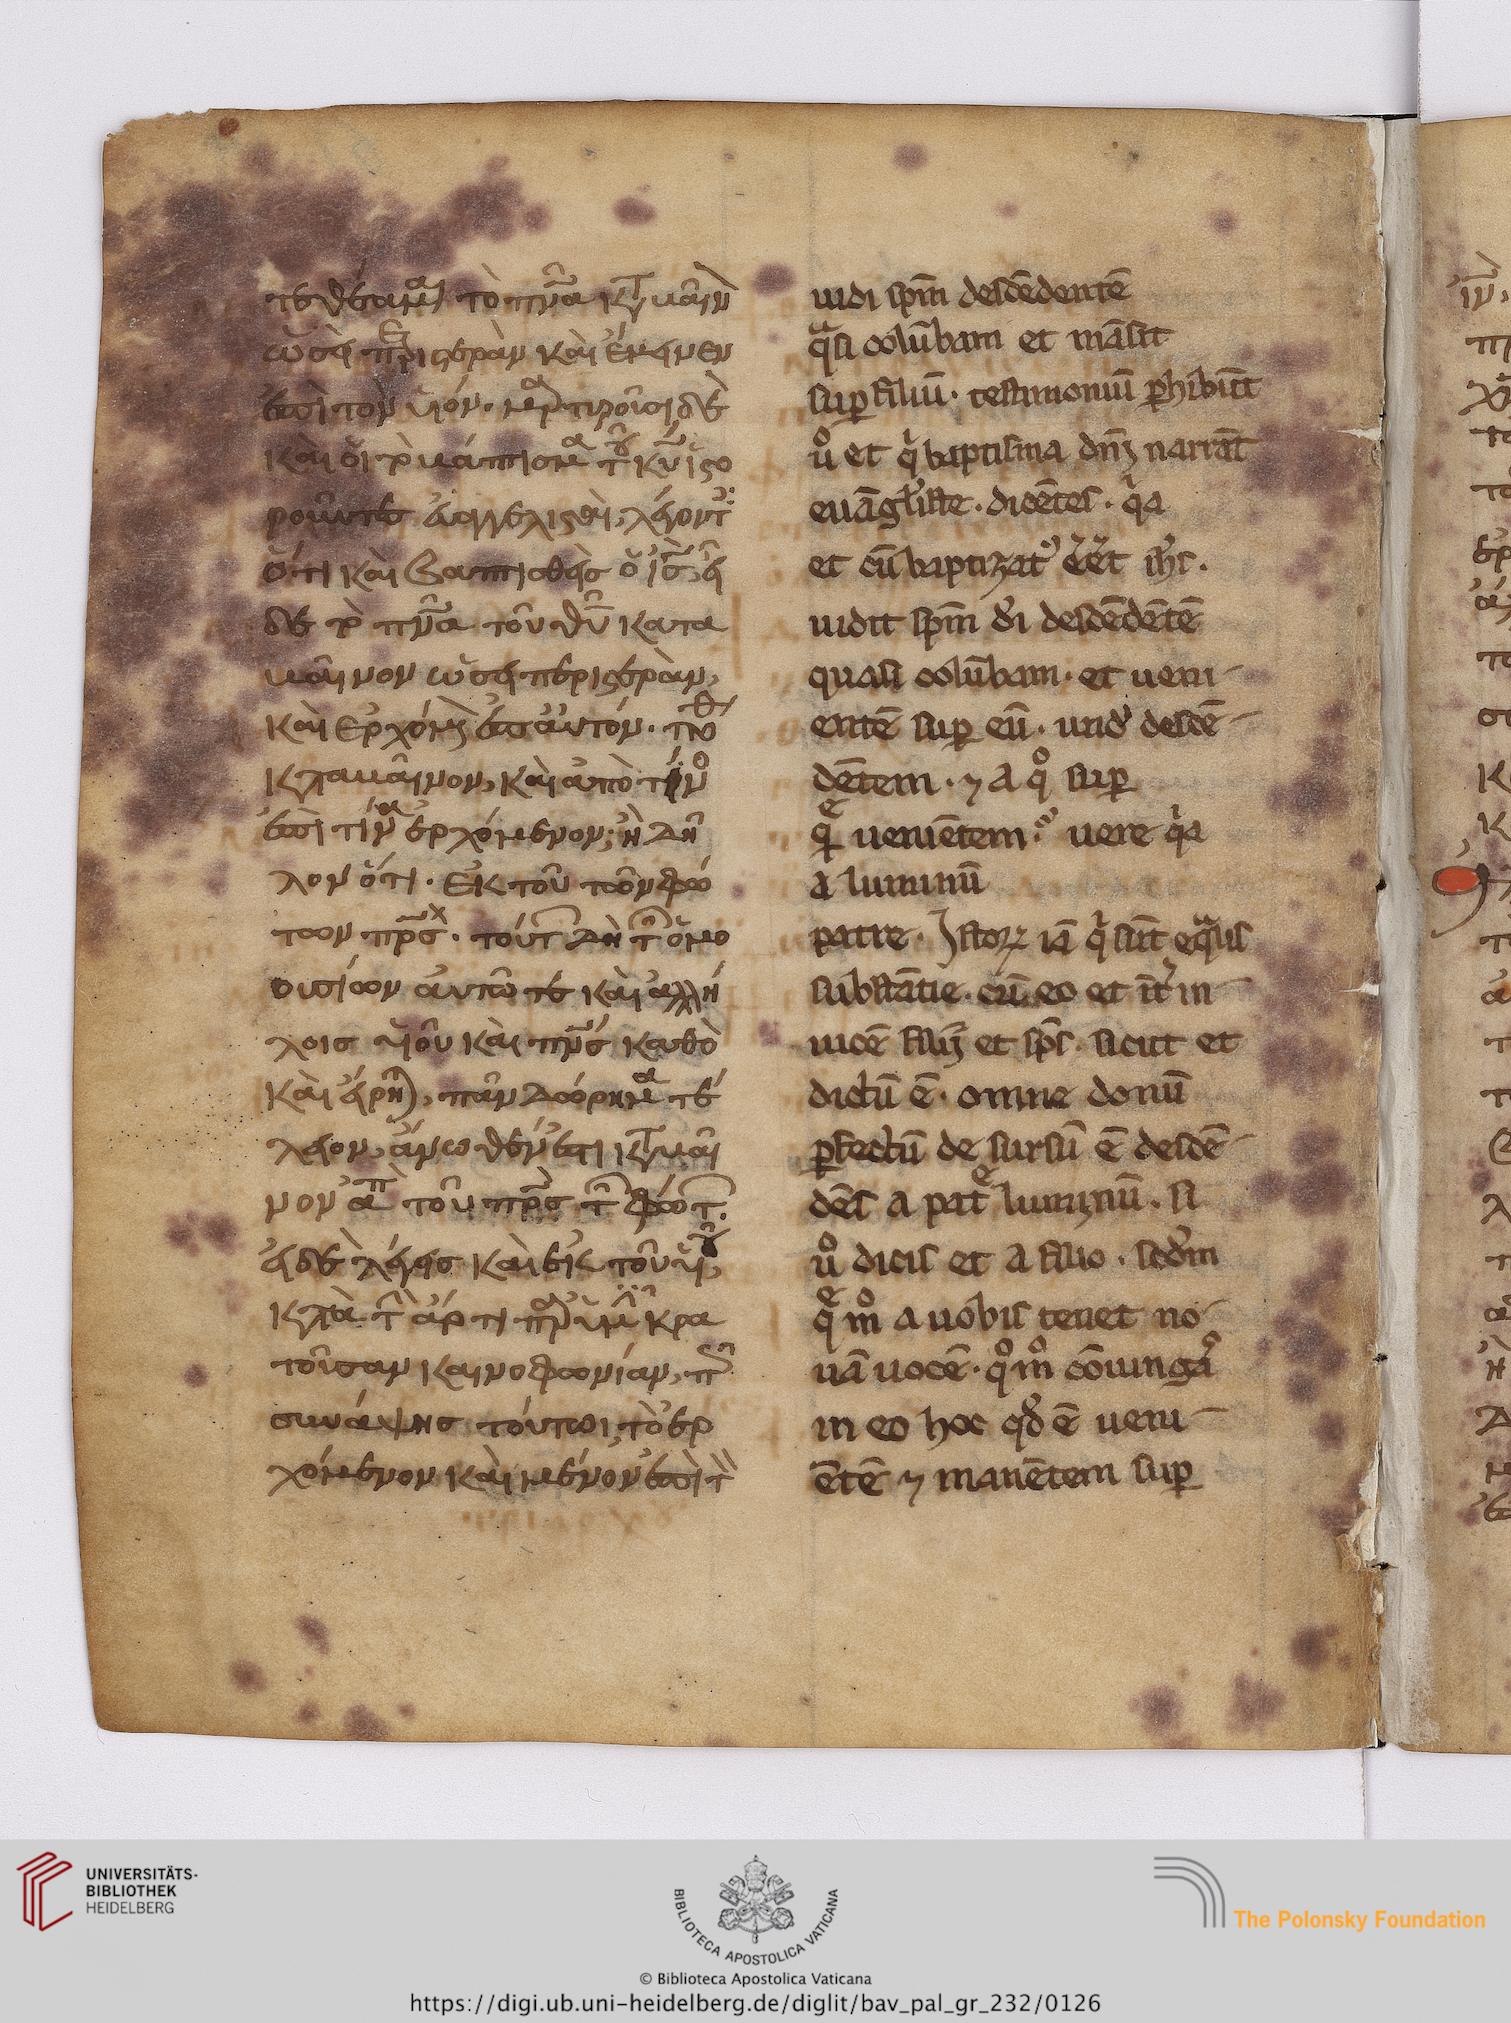 τεθέαμαι τὸ πν̅α κ̅τβαῖν
ὡσεὶ περιστερὰν καὶ ἔμεινεν
ἐπὶ τὸν υἱόν· μαρτυροῦσι δὲ
καὶ οἱ τὸ βάπτισμα τοῦ κ̅υ ἱστο
ροῦντες εὐαγγελισταὶ, λέγοντ
ὅτι καὶ βαπτισθεὶς ὁ ι̅ς, εἶ
δε τὸ πν̅α τοῦ θ̅υ κατα
βαῖνον ὡσεὶ περιστερὰν,
καὶ ἐρχόμ ἐπ αὐτόν· πόθεν
κταβαῖνον, καὶ ἀπὸ τίνο
ἐπὶ τίνα ἐρχόμενον; ἢ δῆ
λον ὅτι· ἐκ τοῦ τῶν φώ
των πρ̅ς· τούτ δὴ τ̅ ὁμο
ουσίων αὐτῶ τε καὶ ἀλλή
λοις υἱοῦ καὶ πν̅ς καθὸ
καὶ εἴρηται, πᾶν δώρημα τέ
λειον, ἄνωθέν ἐστι κ̅τβαῖ
νον ἀπ τοῦ πρ̅ς τ̅ φώτ.
εἰ δὲ λέγεις καὶ ἐκ τοῦ υἱοῦ,
κτὰ τ̅ ἄρτι παρ ὑμ̅ κρα
τοῦσαν καινοφωνίαν, π̅
συνάψης τούτωι, τὸ ἐρ
χόμενον καὶ μένον ἐπὶ τ̅
uidi sp̅m desce̅dente̅
qᵃsi colu̅bam et ma̅sit
sup̲ filiu̅· testimoniu̅ p̲hibu̅t
uͦ et qⁱ baptisma dn̅ȝ narra̅t
eua̅gl̓iste· dice̅tes· qⁱa
et cu̅ baptizat᾽ e̅e̅t ih̅c·
uidit sp̅m d̓i desce̅de̅te̅
quasi colu̅bam· et ueni-
ente̅ sup̲ eu̅· und̓ desce̅-
de̅tem· ⁊ a qͦ sup̲
qᵉ̅ uenie̅tem; uere qⁱa
a luminu̅
patre· Istoꝝ ia̅ qⁱ su̅t eqᵃlis
substa̅tie· cu̅ eo et i̅t᾽ in-
uice̅ filiȝ et sp̅s· sicut et
dictu̅ e̅· omne donu̅
p̲fectu̅ de sursu̅ e̅ desce̅-
de̅s a patᵉ luminu̅· si
uͦ dicis et a filio· sed̓m
qᵉ̅ mͦ a uobis tenet no-
ua̅ uoce̅· qͦmͦ co̅iunga᾽
in eo hoc qd̓ e̅ ueni-
e̅te̅ ⁊ mane̅tem sup̲
UNIVERSITÄTS-
BIBLIOTHEK
HEIDELBERG
BIBLIOTECA APOSTOLICA VATICANA
The Polonsky Foundation
© Biblioteca Apostolica Vaticana
https://digi.ub.uni-heidelberg.de/diglit/bav_pal_gr_232/0126